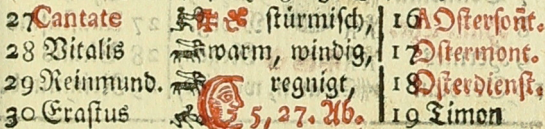 27 Cantate stürmisch, 16 A Ostersont.
28 Vitalis warm, windig, 17 Ostermont.
29 Reinmund. regnigt, 18 Osterdienst.
30 Erastus 5, 27. Ab. 19 Timon